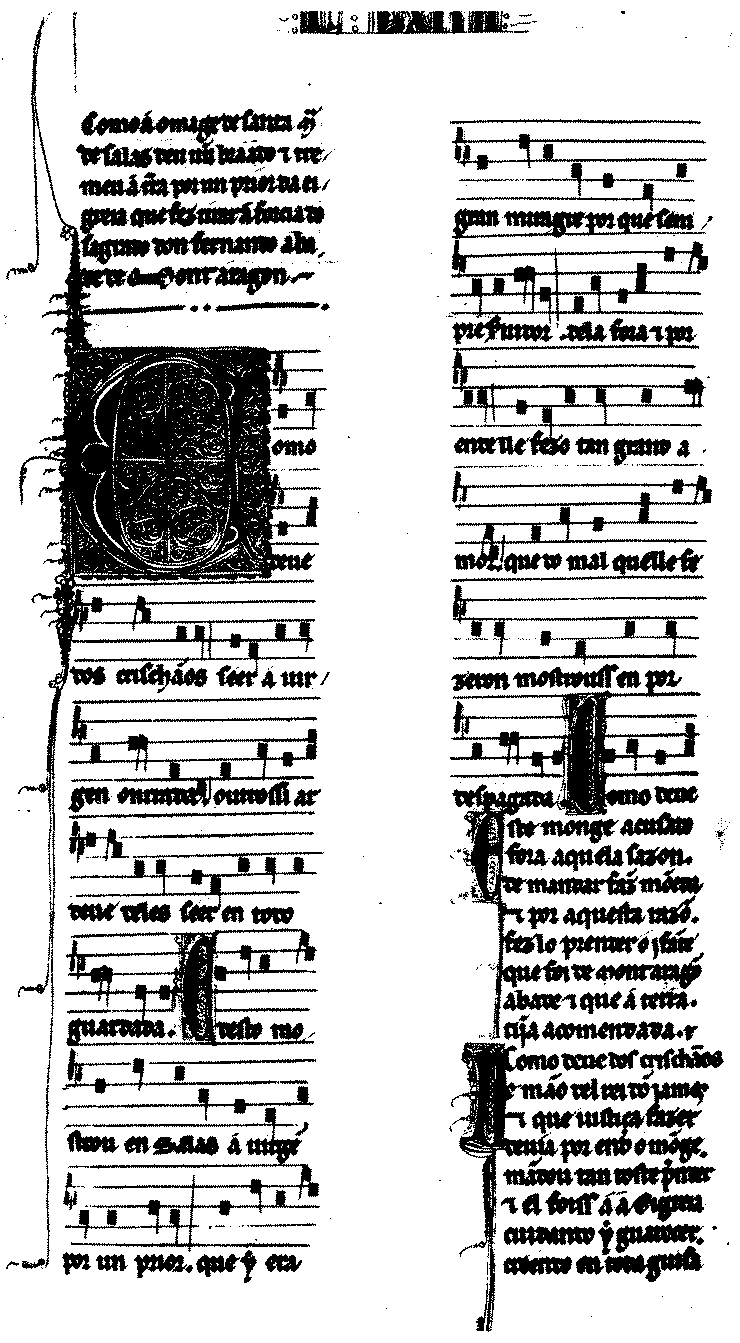 Como á omage de santa Mª
de salas deu un braado ⁊ tre
meu á t̃ra por un prior da ei
greia que fez tirar á força do
sagrado don fernando aba
de de Mont aragon.
Como
deue
dos crischãos seer a uir
gen onrrada. outrossi ar
deue deles seer en todo
guardada. Desto mo
strou en Salas á uirgẽ
por un prior. que y era
gran miragre por que sem
pre será loor dela fora ⁊ por
ende lle fezo tan grand a
mor. que do mal quelle fe
zeron mostrouss en por
despagada. Como deue
Este monge acusado
fora aquela sazon.
de mandar faz mõeda
⁊ por aquesta razõ.
fezlo prender o jfãte
que foi de montaragõ
abade ⁊ que á terra.
tija acomendada.
Como deue dos crischãos
E mão del rei dõ jamẽ
⁊ que iustiça fazer
deuia por end o mõge.
mãdou tan toste p̃nder
⁊ el foiss á a Eigreia
cuidando y guarecer.
creendo en toda guisa